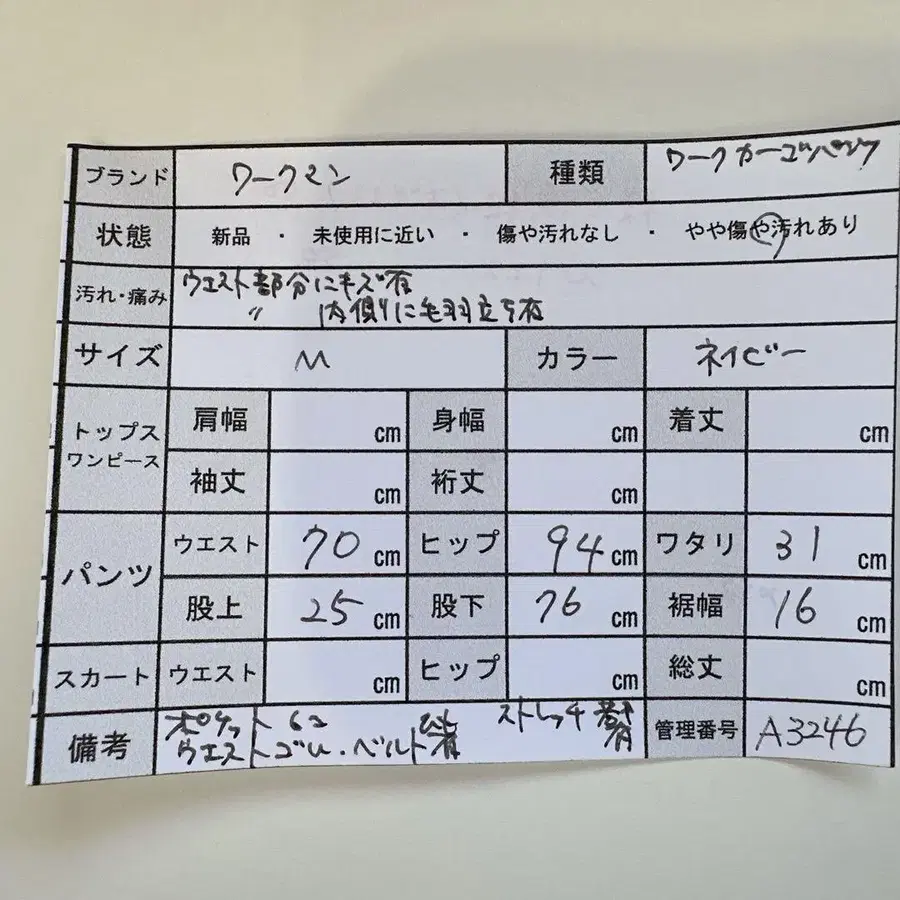 ブランド ワークマン 種類 ワークカーゴパンツ
状態 新品 ・ 未使用に近い ・ 傷や汚れなし ・ やや傷や汚れあり
汚れ・痛み ウエスト部分にキズ有
〃 内側に毛羽立ち有
サイズ M カラー ネイビー
トップス ワンピース 肩幅 cm 身幅 cm 着丈 cm
袖丈 cm 裄丈 cm
パンツ ウエスト 70 cm ヒップ 94 cm ワタリ 31 cm
股上 25 cm 股下 76 cm 裾幅 16 cm
スカート ウエスト cm ヒップ cm 総丈 cm
備考 ポケット 6コ ストレッチ 有
ウエストゴム・ベルト 有
管理番号 A3246